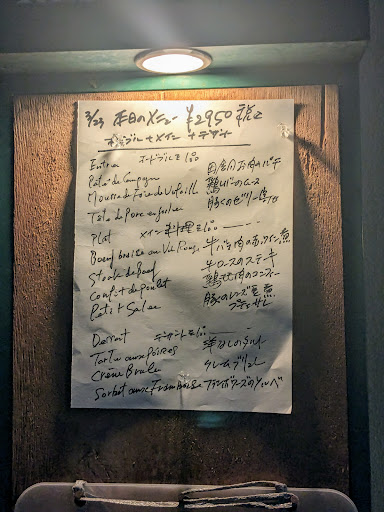 3/23 本日のメニュー ¥2950 税込
オードブル + メイン + デザート
Entree オードブルを1品
Pate de Campagne 田舎風お肉のパテ
Mousse de Foie de Volaille 鶏レバーのムース
Tete de Porc en gelee 豚
Plat メイン料理を1品
Boeuf braise au Vin Rouge 牛 肉の赤ワイン煮
Steak de Boeuf 牛ロースのステーキ
Confit de poulet 鶏もも肉のコンフィー
Petit Salee 豚のレンズ豆煮
プティサレ
Dessert デザートを1品
Tarte aux Poires 洋なしのタルト
Creme Brulee クレームブリュレ
Sorbet aux Framboise フランボワーズのソルベ